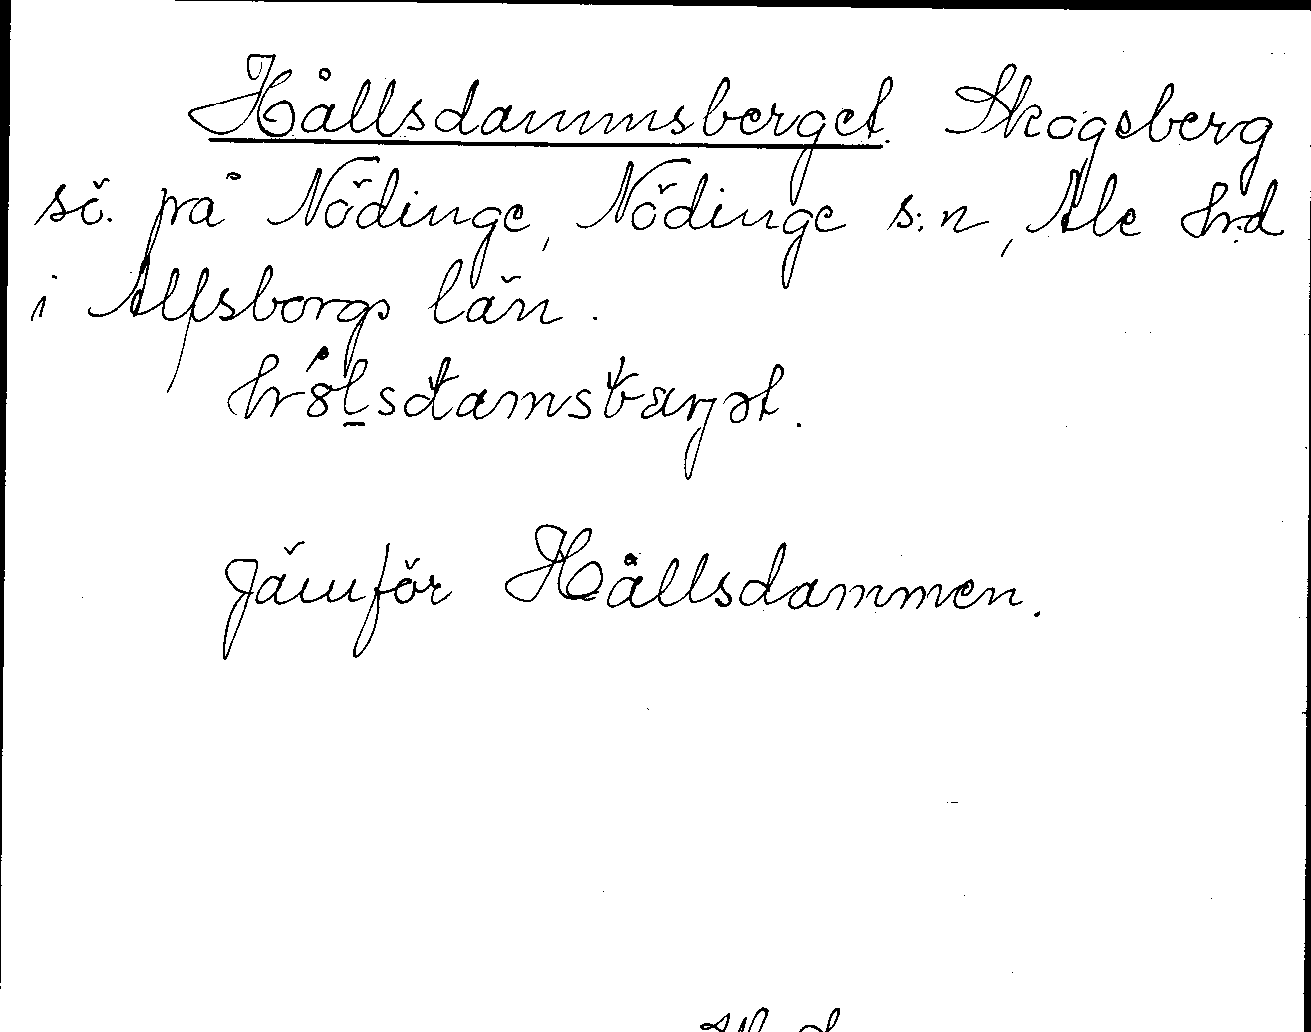 Hållsdammsberget. Skogsberg
sö. på Nödinge, Nödinge s:n, Ale hrd
i Älfsborgs län.
Jämför Hållsdammen.